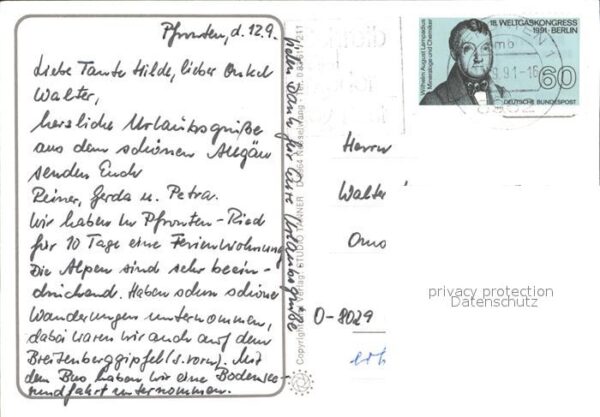 Pfronten, d. 12.9.
Liebe Tante Hilde, lieber Onkel
Walter,
herzliche Urlaubsgrüße
aus dem schönen Allgäu
senden Euch
Reiner, Gerda u. Petra.
Wir haben in Pfronten-Ried
für 10 Tage eine Ferienwohnung
Die Alpen sind sehr beein-
druckend. Haben schon schöne
Wanderungen unternommen,
dabei waren wir auch auf dem
Breitenberggipfel (s. vorn). Mit
dem Bus haben wir eine Bodensee-
rundfahrt unternommen.
Vielen Dank für Eure Urlaubsgrüße
Copyright Verlag: STUDIO TANNER Nesselwang
Herrn
Walter
O-8029
Wilhelm August Lampadius
Mineraloge und Chemiker
18. WELTGASKONGRESS
1991 · BERLIN
60
DEUTSCHE BUNDESPOST
privacy protection
Datenschutz